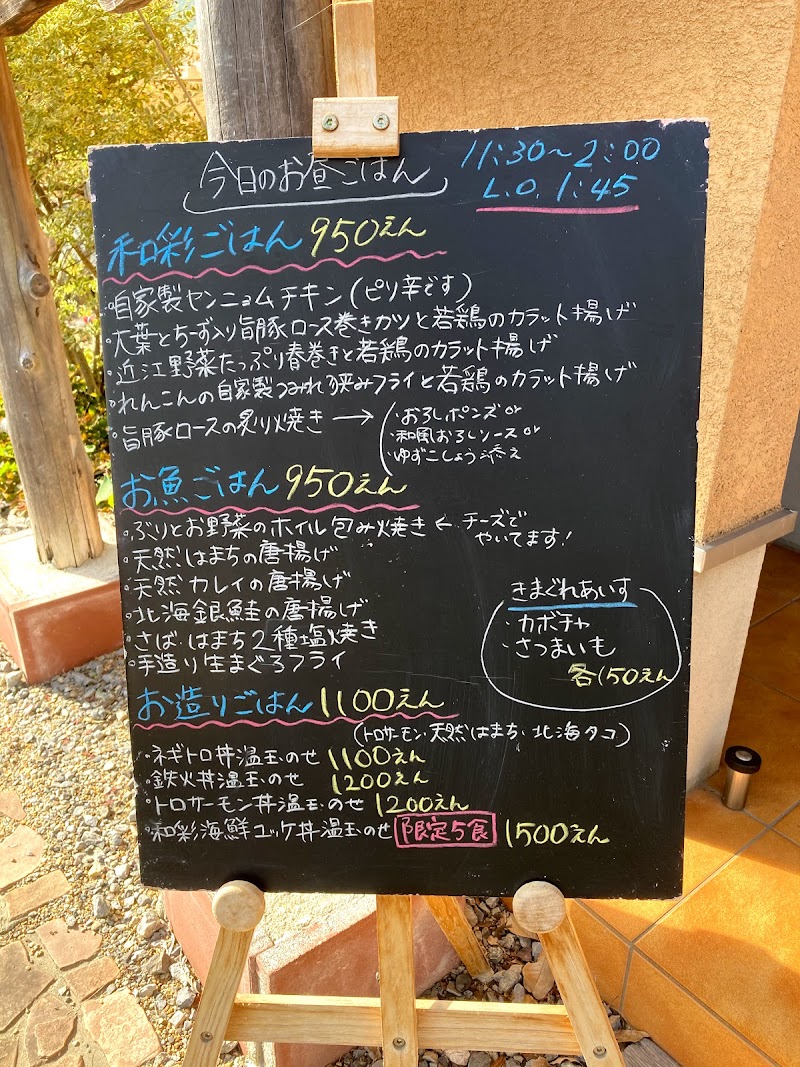 今日のお昼ごはん
11:30〜2:00
L.O.1:45
和彩ごはん 950えん
・自家製ヤンニョムチキン(ピリ辛です)
・大葉とちーず入り旨豚ロース巻きカツと若鶏のカラット揚げ
・近江野菜たっぷり春巻きと若鶏のカラット揚げ
・れんこんの自家製つみれ挟みフライと若鶏のカラット揚げ
・旨豚ロースの炙り焼き →
・おろしポンズor
・和風おろしソースor
・ゆずこしょう添え
お魚ごはん 950えん
・ぶりとお野菜のホイル包み焼き ← チーズで
やいてます!
・天然はまちの唐揚げ
・天然カレイの唐揚げ
・北海銀鮭の唐揚げ
・さば・はまち2種塩焼き
・手造り生まぐろフライ
きまぐれあいす
・カボチャ
・さつまいも
各150えん
お造りごはん 1100えん
(トロサーモン・天然はまち・北海タコ)
・ネギトロ丼温玉のせ 1100えん
・鉄火丼温玉のせ 1200えん
・トロサーモン丼温玉のせ 1200えん
・和彩海鮮ユッケ丼温玉のせ 限定5食 1500えん